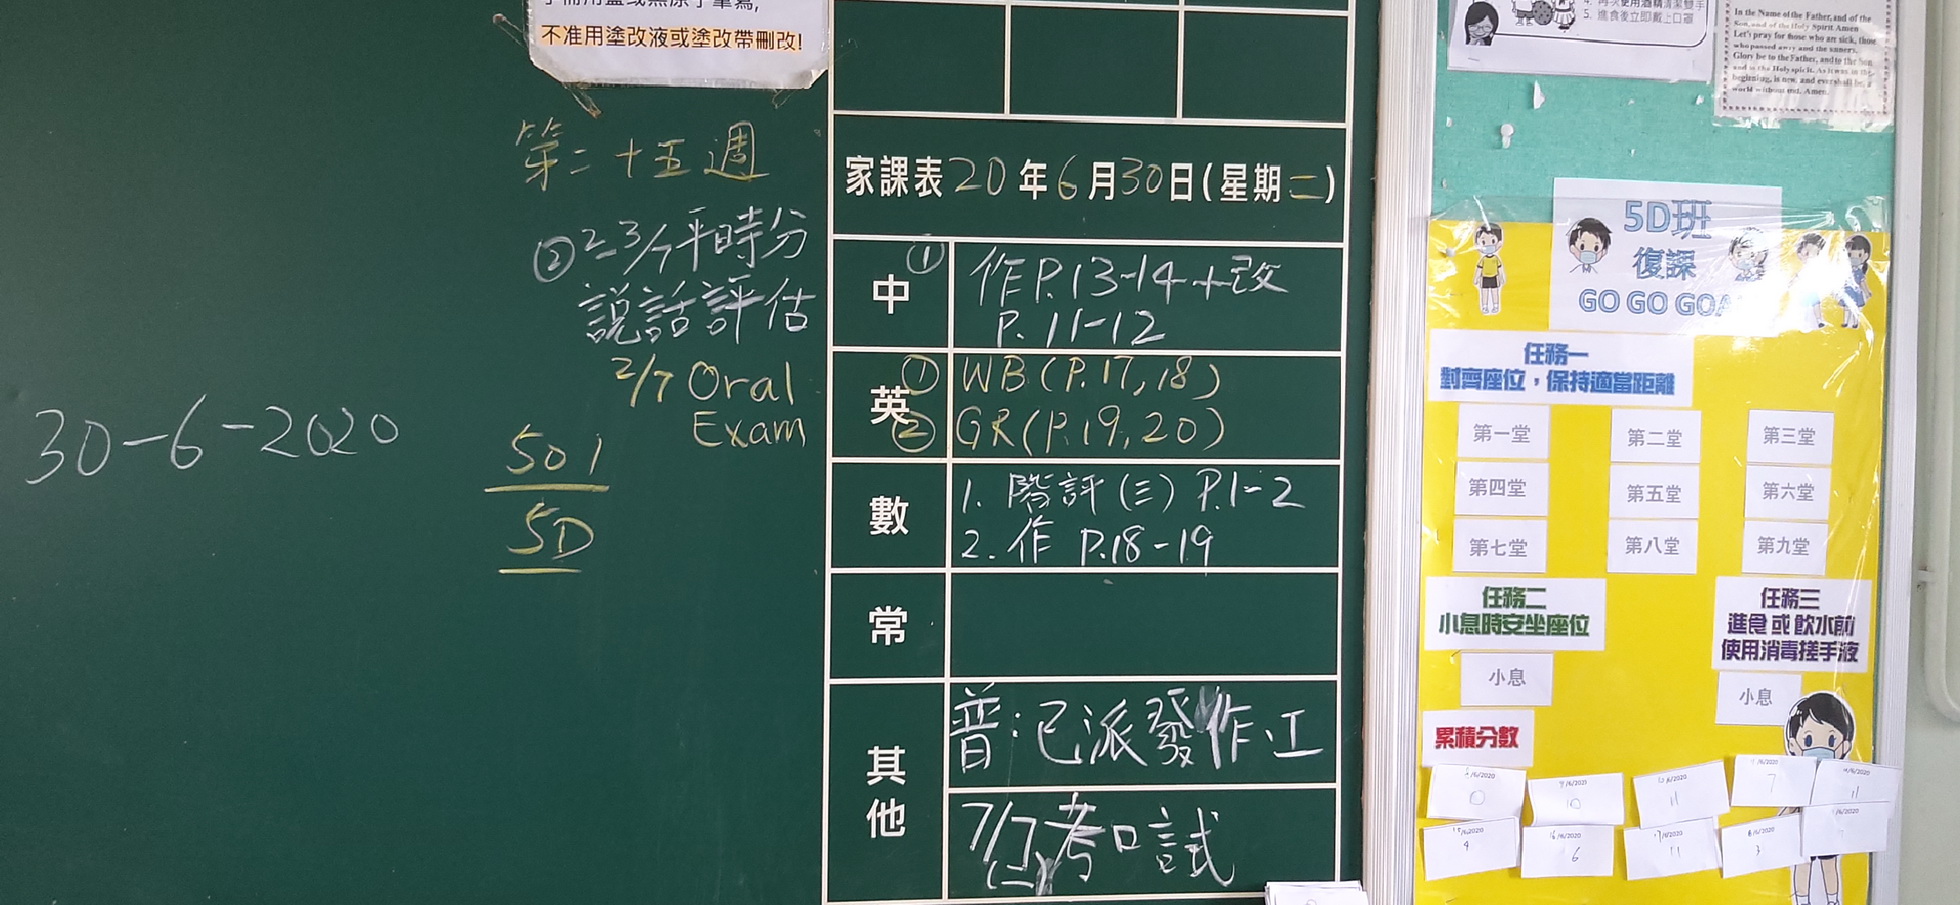 不准用塗改液或塗改帶刪改!
第二十五週
② 2-3/7平時分
說話評估
2/7 Oral
Exam
30-6-2020
501
5D
家課表20年6月30日(星期二)
中
① 作P.13-14+改
P.11-12
英
① WB(P.17,18)
② GR(P.19,20)
數
1. 階評(三) P.1-2
2. 作 P.18-19
常
其他
普:已派發作.工
7/7考口試
(二)
5. 進食後立即戴上口罩
In the Name of the Father, and of the
Son, and of the Holy Spirit Amen
Let's pray for those who are sick, those
who passed away and the sinners.
Glory be to the Father, and to the Son
and to the Holy spirit. As it was in the
beginning, is now, and ever shall be,
world without end. Amen.
5D班
復課
GO GO GOAL
任務一
對齊座位，保持適當距離
第一堂
第二堂
第三堂
第四堂
第五堂
第六堂
第七堂
第八堂
第九堂
任務二
小息時安坐座位
小息
任務三
進食 或 飲水前
使用消毒搓手液
小息
累積分數
0
10
11
7
11
4
6
11
3